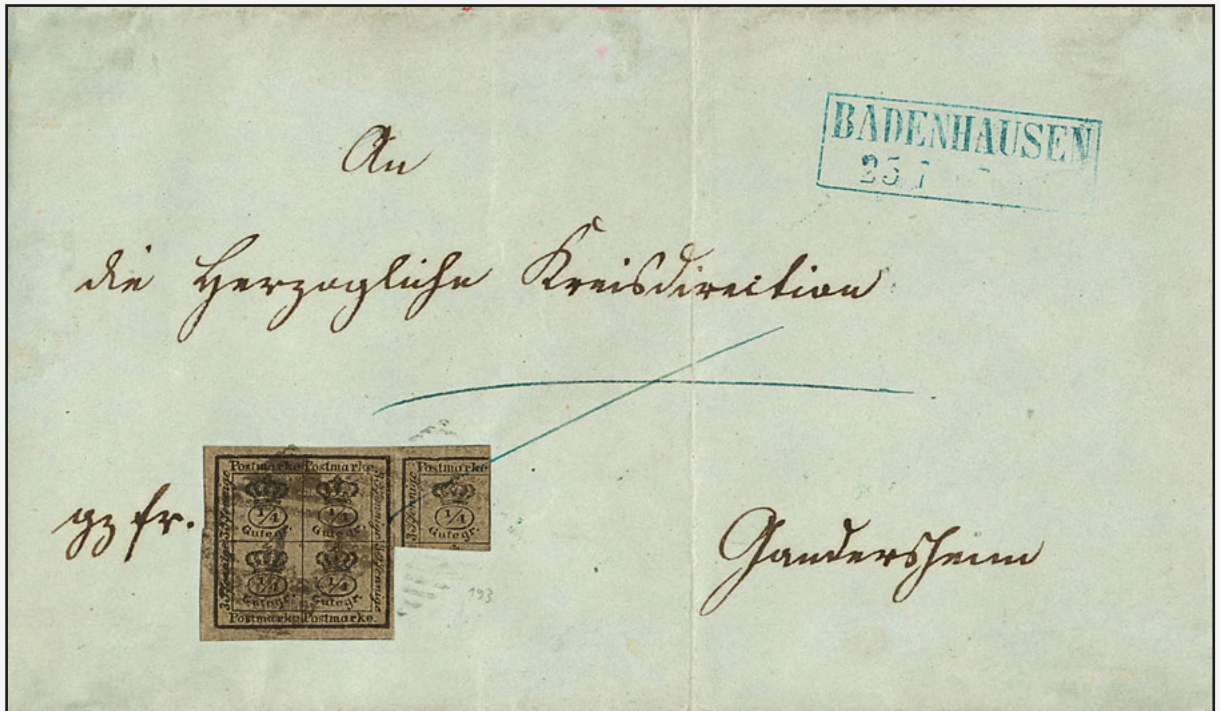 BADENHAUSEN
25
An
die Herzogliche Kreisdirection
gz fr.
Gandersheim
Postmarke Postmarke.
3 Pfennige 3 Pfennige
3 Pfennige 3 Pfennige
1/4 1/4
Gutegr. Gutegr.
1/4 1/4
Gutegr. Gutegr.
Postmarke Postmarke.
Postmarke
3 Pfennige
1/4
Gutegr.
193